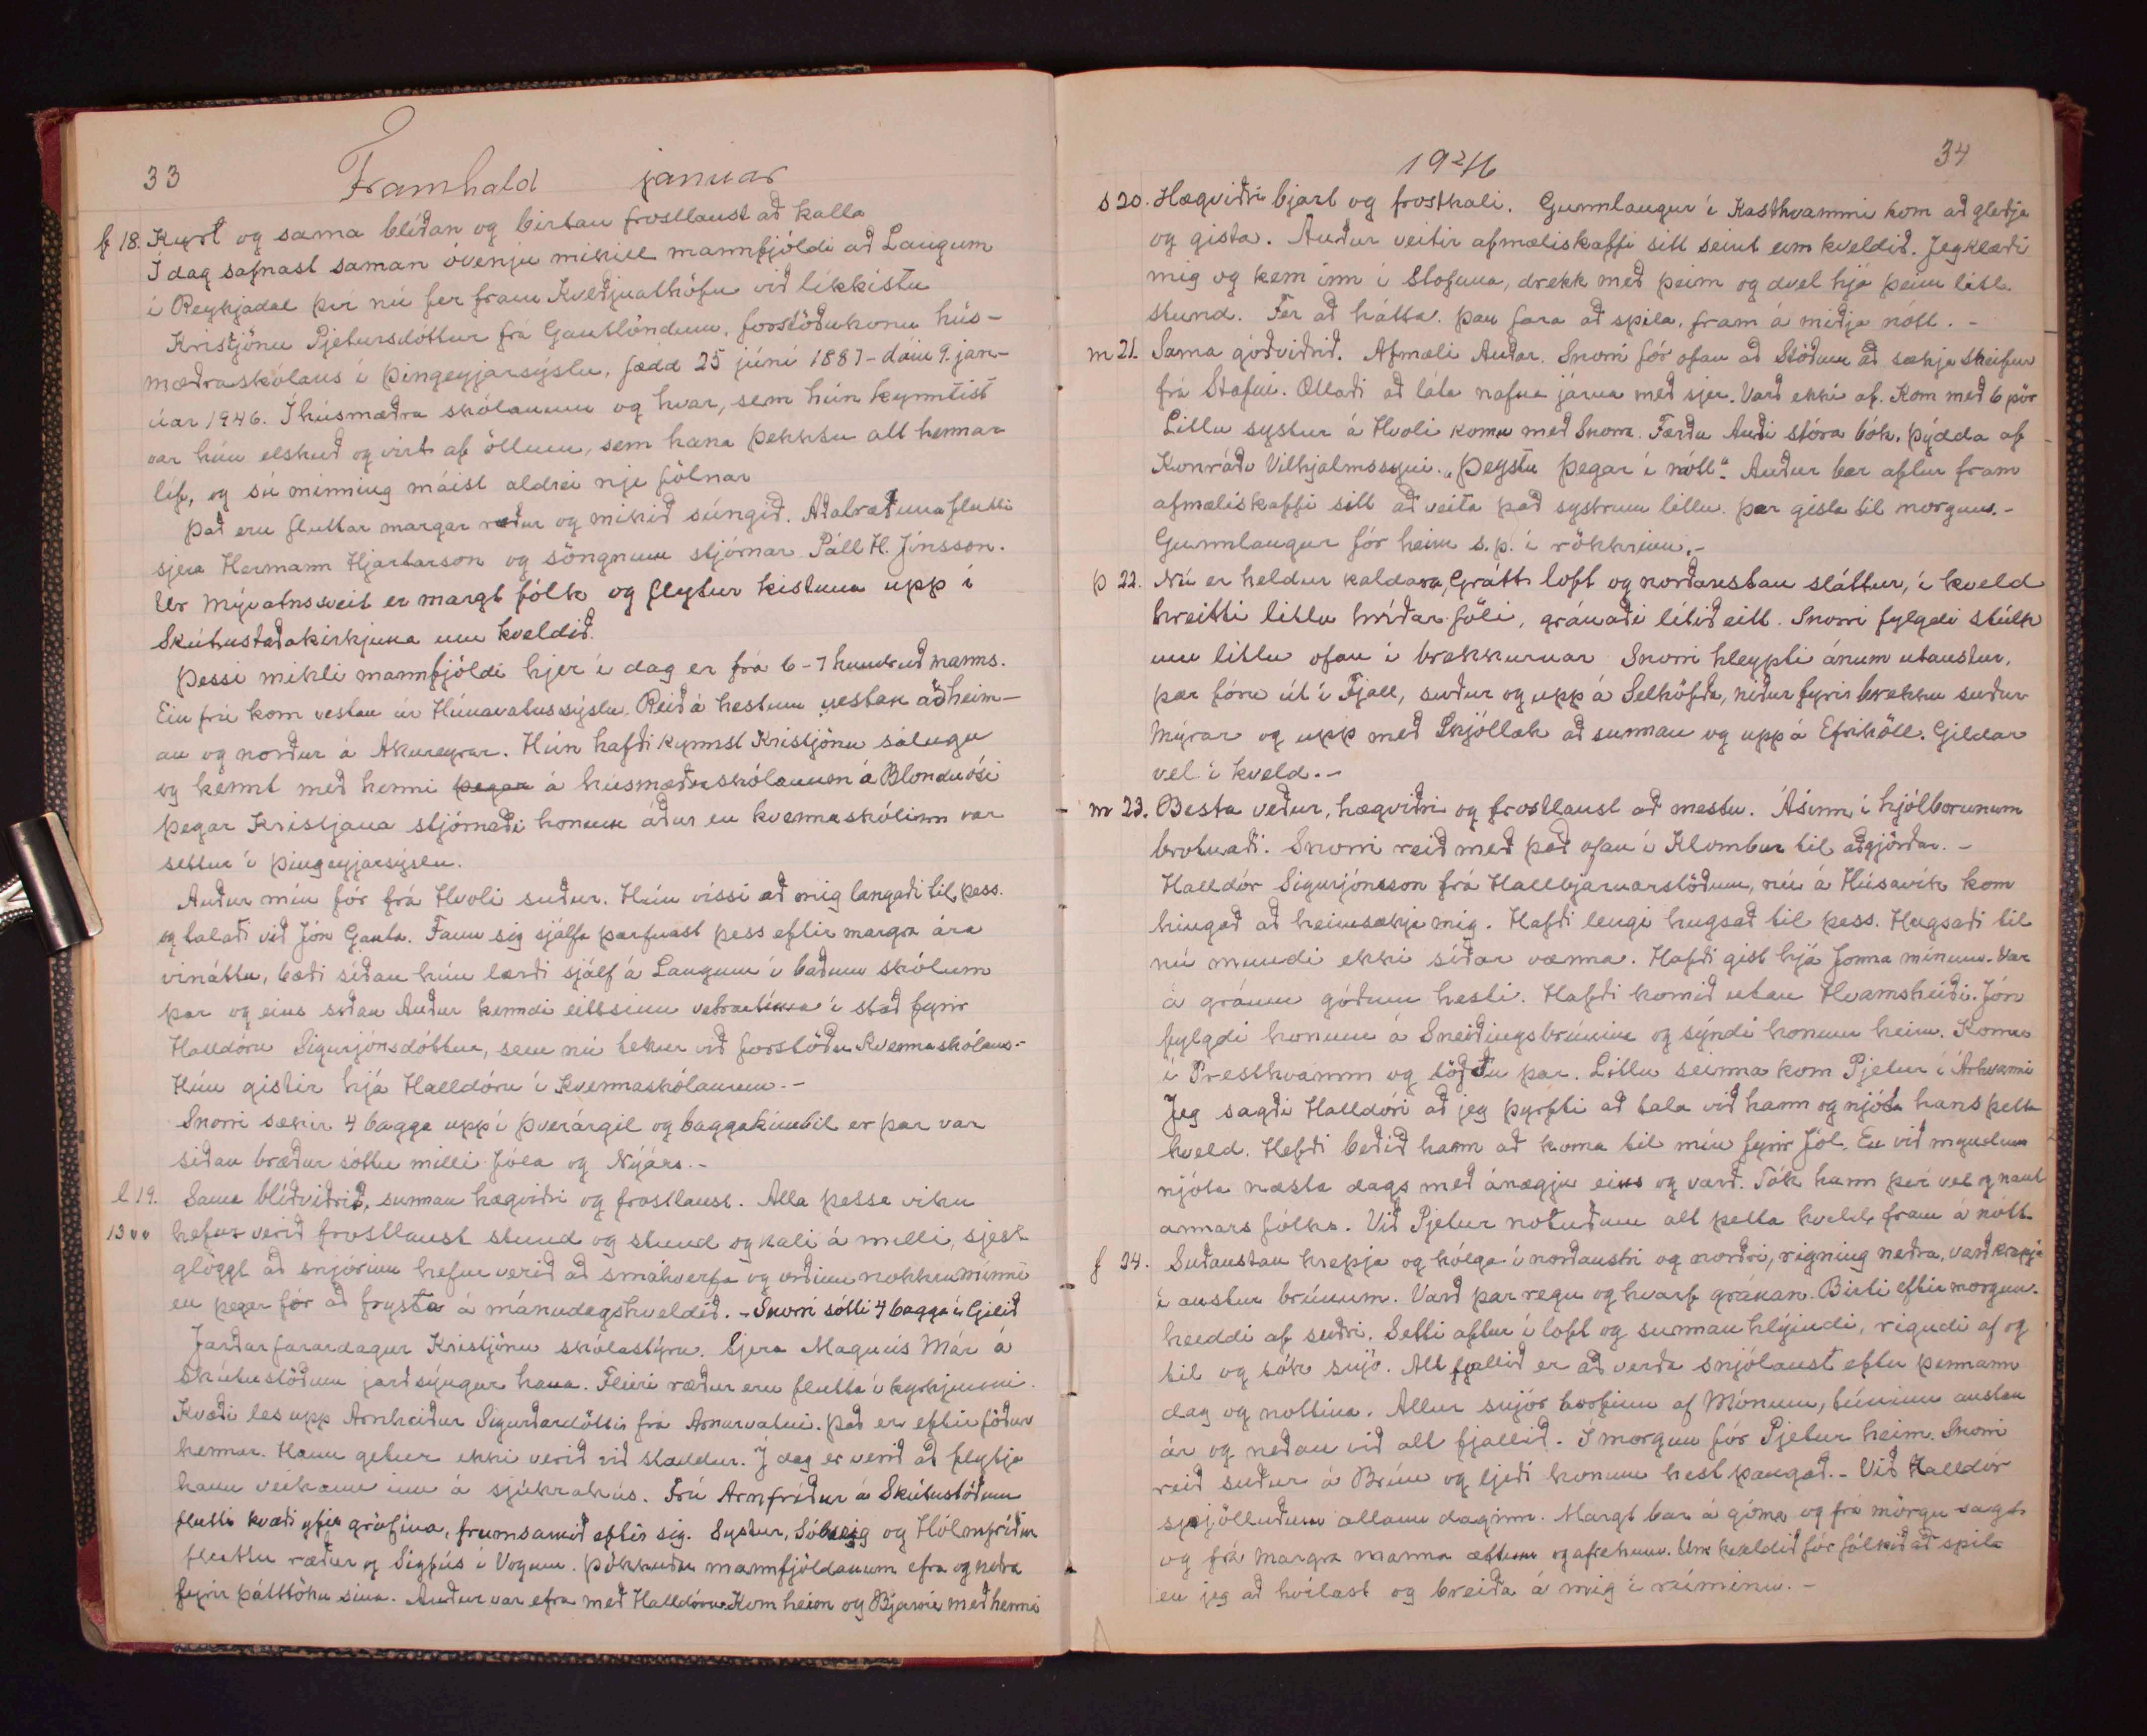 33
Framhald januar
f 18. Kyrt og sama blíðan og birtan frostlaust að kalla
Í dag safnast saman óvenju mikill mannfjöldi að Laugum
í Reykjadal því nú fer fram Kveðjuathöfn við líkkistu
Kristjönu Pjetursdóttur frá Gautlöndum, forstöðukonu hús-
mæðraskólans í Þingeyjarsýslu, fædd 25 júní 1887 - dáin 9. jan-
úar 1946. Í húsmæðra skólanum og hvar, sem hún kynntist
var hún elskuð og virt af öllum, sem hana þekktu allt hennar
líf, og sú minning máist aldrei nje fölnar
Það eru fluttar margar ræður og mikið súngið. Aðalræðuna flutti
sjera Hermann Hjartarson og söngnum stjórnar Páll H. Jónsson.
Úr Mývatnssveit er margt fólk og flytur kistuna upp í
Skútustaðakirkjuna um kveldið.
Þessi mikli mannfjöldi hjer í dag er frá 6-7 hundruð manns.
Ein frú kom vestan úr Húnavatnssýslu. Reið á hestum vestan að heim-
an og norður á Akureyrar. Hún hafði kynnst Kristjönu sálugu
og kennt með henni þegar á húsmæðraskólanum á Blonduósi
þegar Kristjana stjórnaði honum áður en kvennaskólinn var
settur í Þingeyjarsýslu.
Auður mín fór frá Hvoli suður. Hún vissi að mig langaði til þess.
og talaði við Jón Gauta. Fann sig sjálfa þarfnast þess eftir margra ára
vináttu, bæði síðan hún lærði sjálf á Laugum í báðum skólum
þar og eins síðan Auður kenndi eittsinn vetrartíma í stað fyrir
Halldóru Sigurjónsdóttur, sem nú tekur við forstöðu Kvennaskólans.-
Hún gistir hjá Halldóru í Kvennaskólanum.-
Snorri sækir 4 bagga upp í Þverárgil og baggakimbil er þar var
síðan bræður sóttu milli Jóla og Nýárs.-
l 19. Sama blíðviðrið, sunnan hægviðri og frostlaust. Alla þessa viku
13 vv hefur verið frostlaust stund og stund og kali á milli, sjest
glöggt að snjórinn hefur verið að smáhverfa og orðinn nokkru minni
en þegar fór að frysta á mánudagskveldið. - Snorri sótti 4 bagga í Gilið
Jarðarfarardagur Kristjönu skólastýru. Sjera Magnús Már á
Skútustöðum jarðsýngur hana. Fleiri ræður eru flutta í kyrkjunni.
Kvæði les upp Arnheiður Sigurðardóttir frá Arnarvatni. Það er eftir föður
hennar. Hann getur ekki verið við staddur. Í dag er verið að flytja
hann veikann inn á sjúkrahús. Frú Arnfríður á Skútustöðum
flutti kvæði yfir gröfina, frumsamið eftir sig. Systur, Sólveig og Hólmfríður
fluttu ræður og Sigfús í Vogum. Þökkuðu mannfjöldanum efra og neðra
fyrir þátttöku sína. Auður var efra með Halldóru. Kom heim og Bjarni með henni
1946
34
s 20. Hægviðri bjart og frostkali. Gunnlaugur í Kasthvammi kom að gleðja
og gista. Auður veitir afmæliskaffi sitt seint um kveldið. Jeg klæði
mig og kem inn í Stofuna, drekk með þeim og dvel hjá þeim litla
stund. Fer að hátta. Þau fara að spila, fram á miðja nótt. -
m 21. Sama góðviðrið. Afmæli Auðar. Snorri fór ofan að Stöðum að sækja skeifur
frá Stafni. Ætlaði að láta nafna járna með sjer. Varð ekki af. Kom með 6 pör
Litlu systur á Hvoli komu með Snorra. Færðu Auði stóra bók. Þýdda af
Konráði Vilhjalmssyni. „Þeystu þegar í nótt". Auður ber aftur fram
afmæliskaffi sitt að veita það systrum litlu. Þær gista til morguns.-
Gunnlaugur fór heim s.p. í rökkrinu.-
þ 22. Nú er heldur kaldara, Grátt loft og norðaustan sláttur, í kveld
hreitti litlu hríðar föli, gránaði lítið eitt. Snorri fylgdi stúlk
um litlu ofan í brekkurnar Snorri hleypti ánum útaustur,
þær fóru út í Fjall, suður og upp á Selhöfða, niður fyrir brekku suður
Mýrar og upp með Skjóllæk að sunnan og upp á Efrihöll. Gildar
vel í kveld.-
m 23. Besta veður, hægviðri og frostlaust að mestu. Ásinn í hjólborunum
brotnaði. Snorri reið með það ofan í Klombur til aðgjörðar. -
Halldór Sigurjónsson frá Hallbjarnarstöðum, nú á Húsavík kom
hingað að heimsækja mig. Hafði lengi hugsað til þess. Hugsaði til
nú mundi ekki síðar vænna. Hafði gist hjá Jonna mínum. Var
á gránum góðum hesti. Hafði komið utan Hvamsheiði. Jón
fylgdi honum á Sneiðingsbrúnina og sýndi honum heim. Komu
í Presthvamm og töfðu þar. Litlu seinna kom Pjetur í Árhvammi
Jeg sagði Halldóri að jeg þyrfti að tala við hann og njóta hans þetta
kveld. Hefði beðið hann að koma til mín fyrir Jól. En við myndum
njóta næsta dags með ánægju eins og varð. Tók hann því vel og naut
annars fólks. Við Pjetur notuðum allt þetta kveld fram á nótt.
f 24. Suðaustan krepja og hólga í norðaustri og norðri, rigning neðra, varð krapje
í austur brúnum. Varð þar regn og hvarf gráman. Birti eftir morgun.
heiddi af suðri. Setti aftur í loft og sunnan hlýindi, rigndi af og
til og tók snjó. Allt fjallið er að verða snjólaust eftir þennann
dag og nottina. Allur snjór horfinn af Mónum, túninu austan
ár og neðan við allt fjallið. Í morgun fór Pjetur heim. Snorri
reið suður á Brún og ljeði honum hest þangað. - Við Halldór
spjölluðum allann daginn. Margt bar á góma og frá mörgu sagt
og frá margra manna ættum og afrekum. Um kveldið fór fólkið að spila
en jeg að hvílast og breiða á mig í rúminu.-